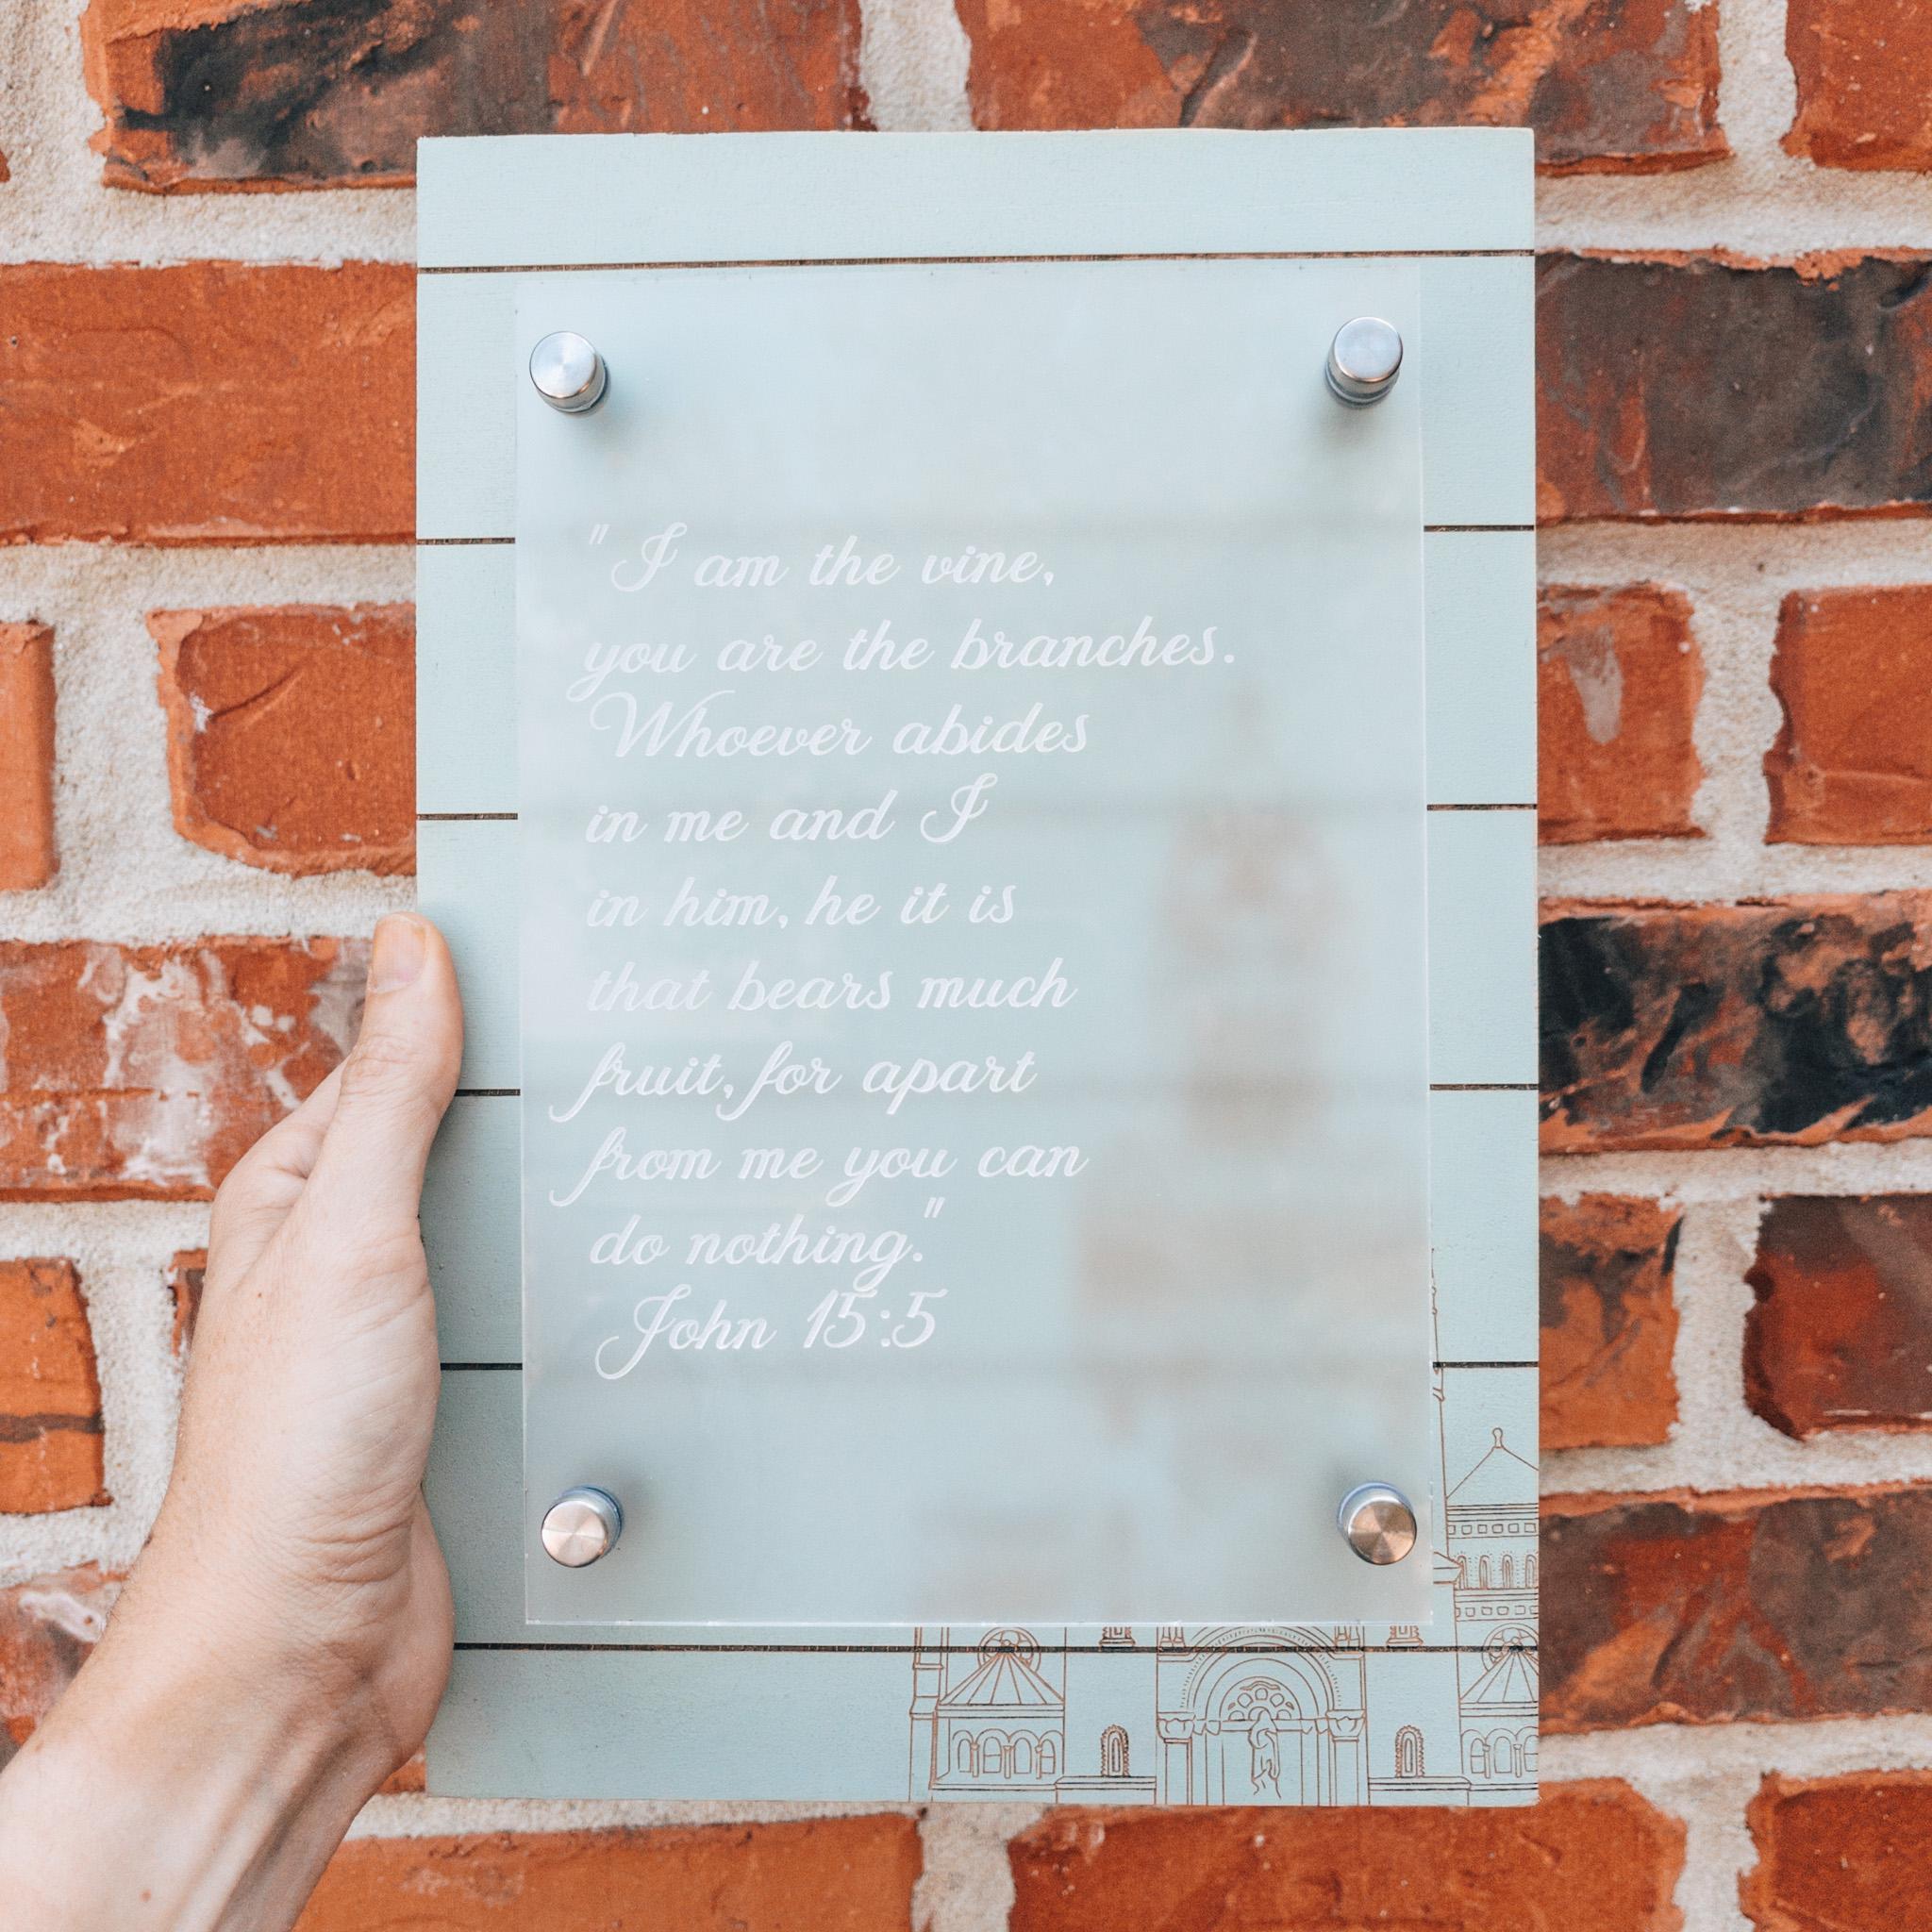 "I am the vine,
you are the branches.
Whoever abides
in me and I
in him, he it is
that bears much
fruit, for apart
from me you can
do nothing."
John 15:5